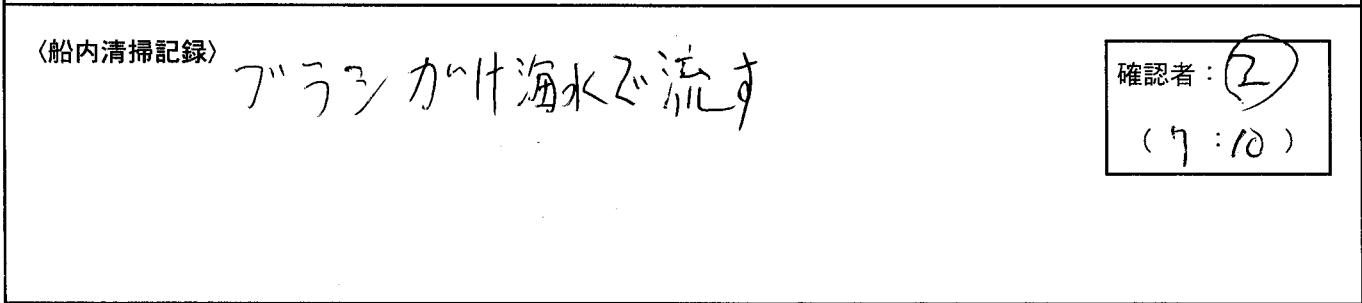 〈船内清掃記録〉 ブラシがけ海水で流す
確認者：②
（7：10）